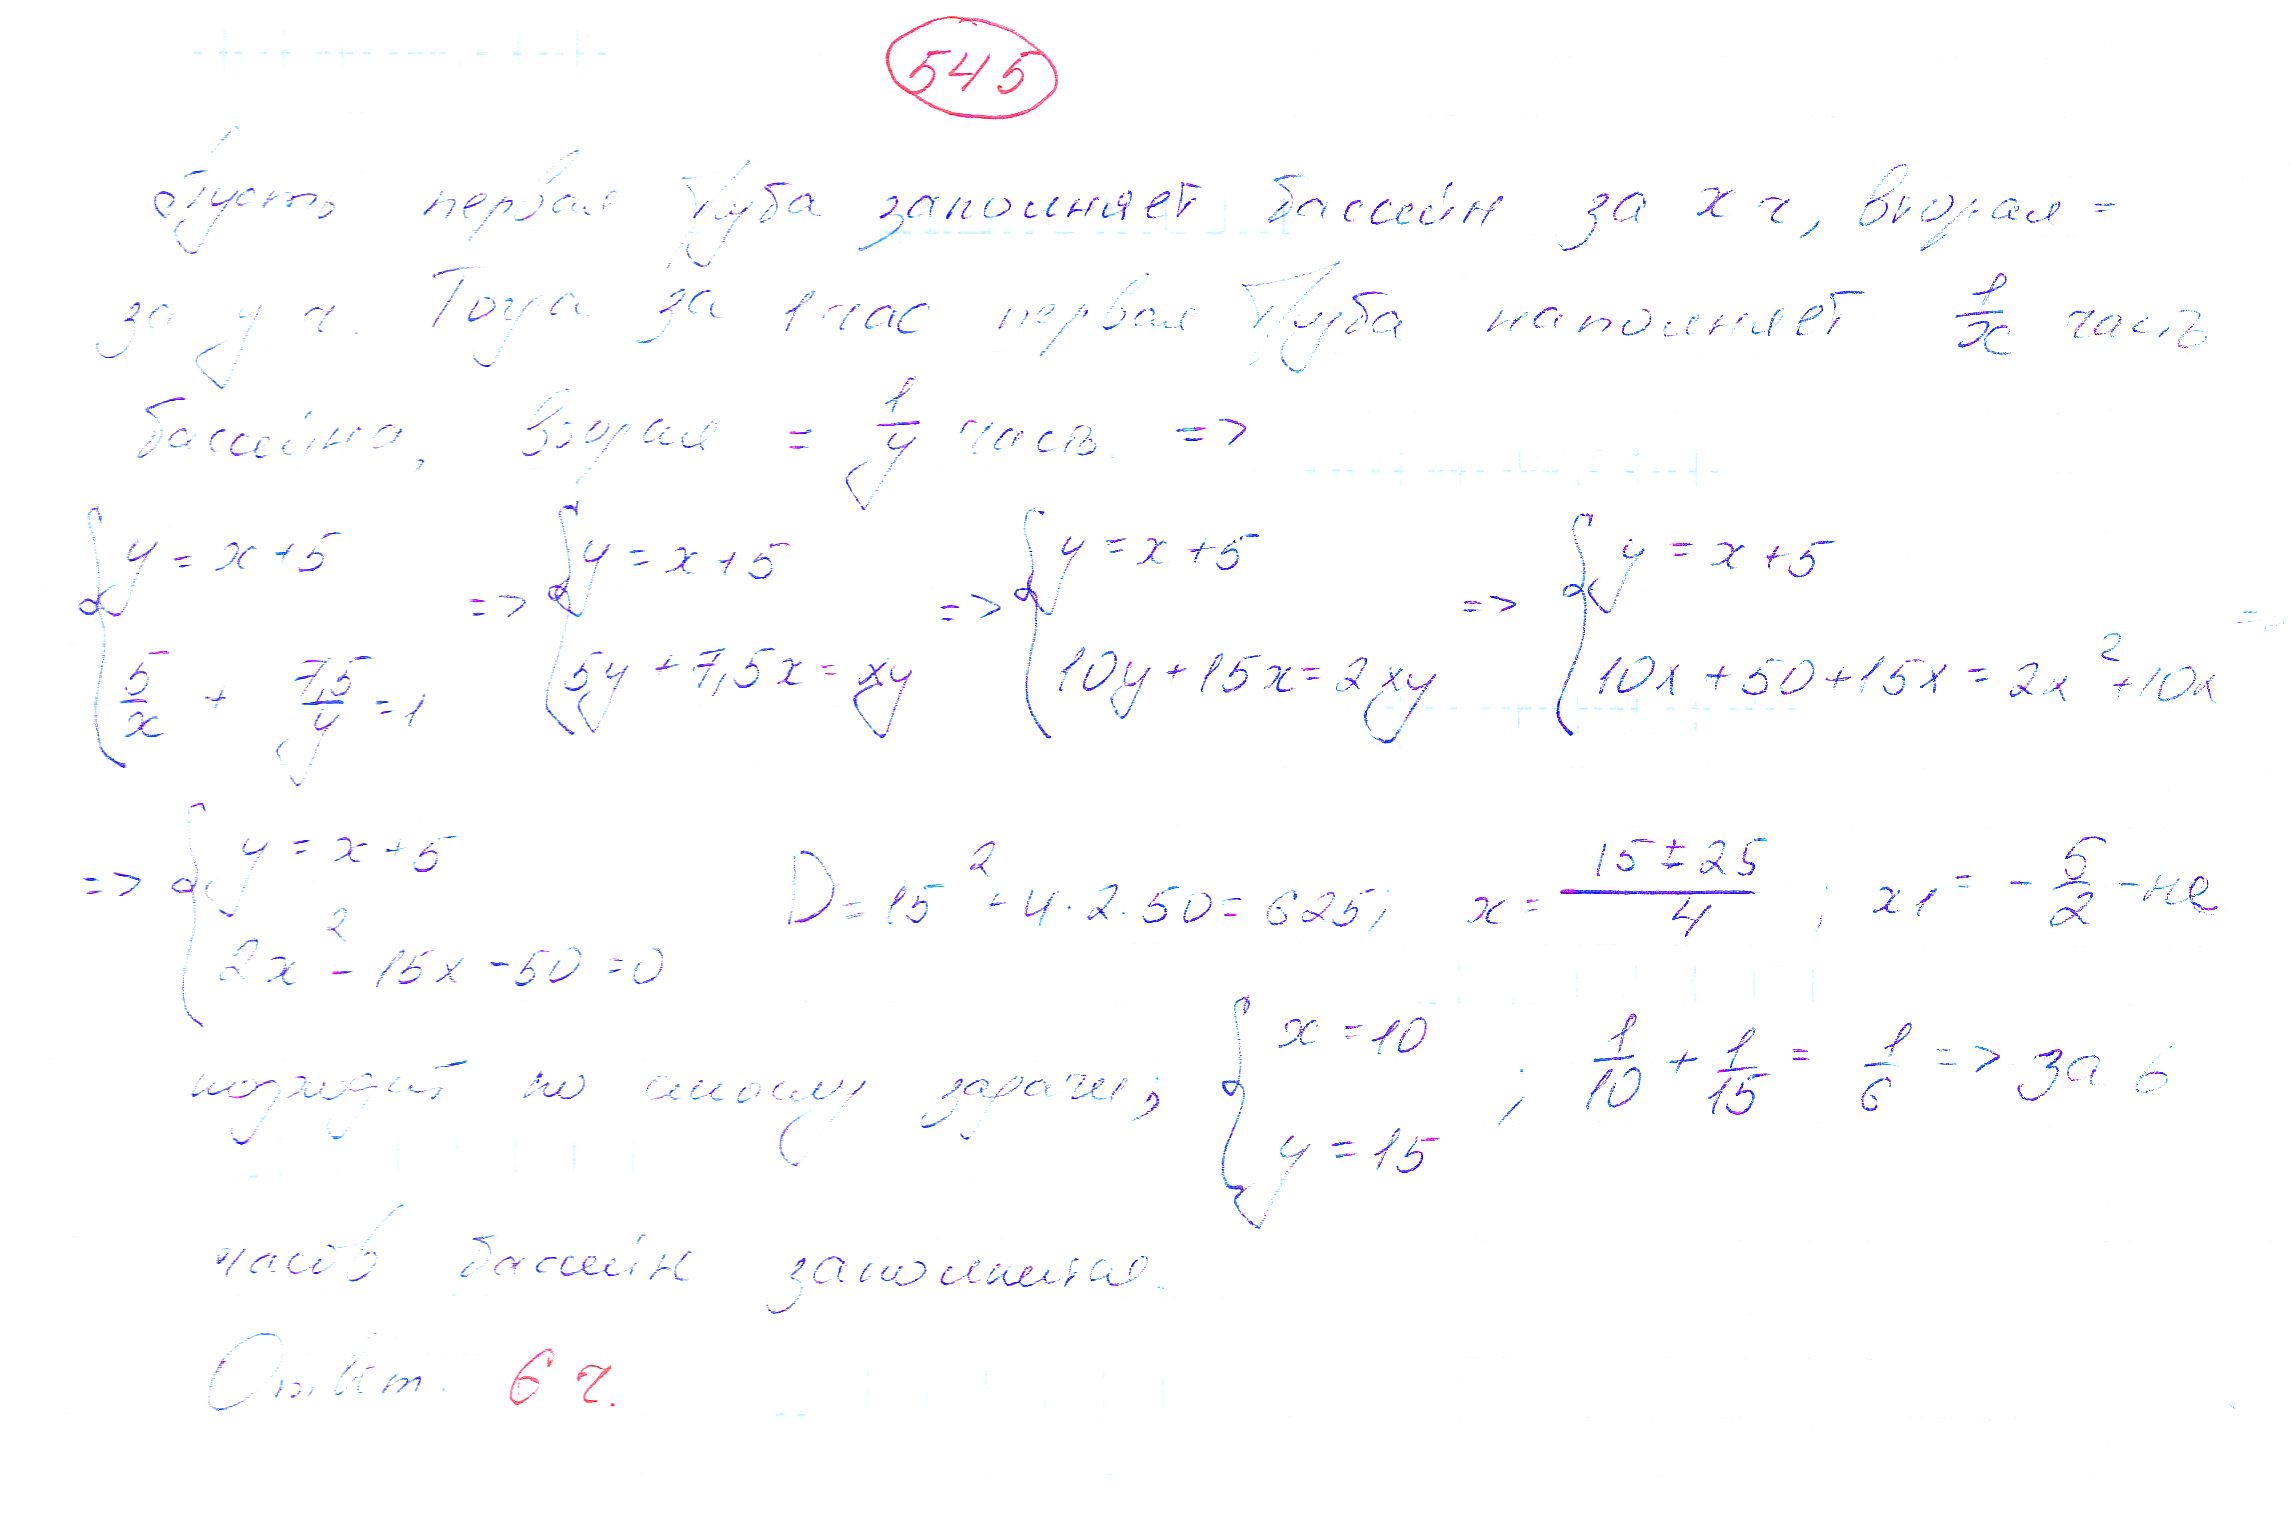 545
Пусть первая труба заполняет бассейн за x ч, вторая =
за y ч. Тогда за 1 час первая труба наполняет 1/x часть
бассейна, вторая = 1/y часть =>
{ y = x + 5 ; 5/x + 7,5/y = 1 => { y = x + 5 ; 5y + 7,5x = xy => { y = x + 5 ; 10y + 15x = 2xy => { y = x + 5 ; 10x + 50 + 15x = 2x² + 10x =>
=> { y = x + 5 ; 2x² - 15x - 50 = 0 D = 15² - 4 · 2 · 50 = 625; x = (15 ± 25)/4 ; x1 = - 5/2 - не
подходит по смыслу задачи; { x = 10 ; y = 15 ; 1/10 + 1/15 = 1/6 => за 6
часов бассейн заполнится.
Ответ. 6 ч.